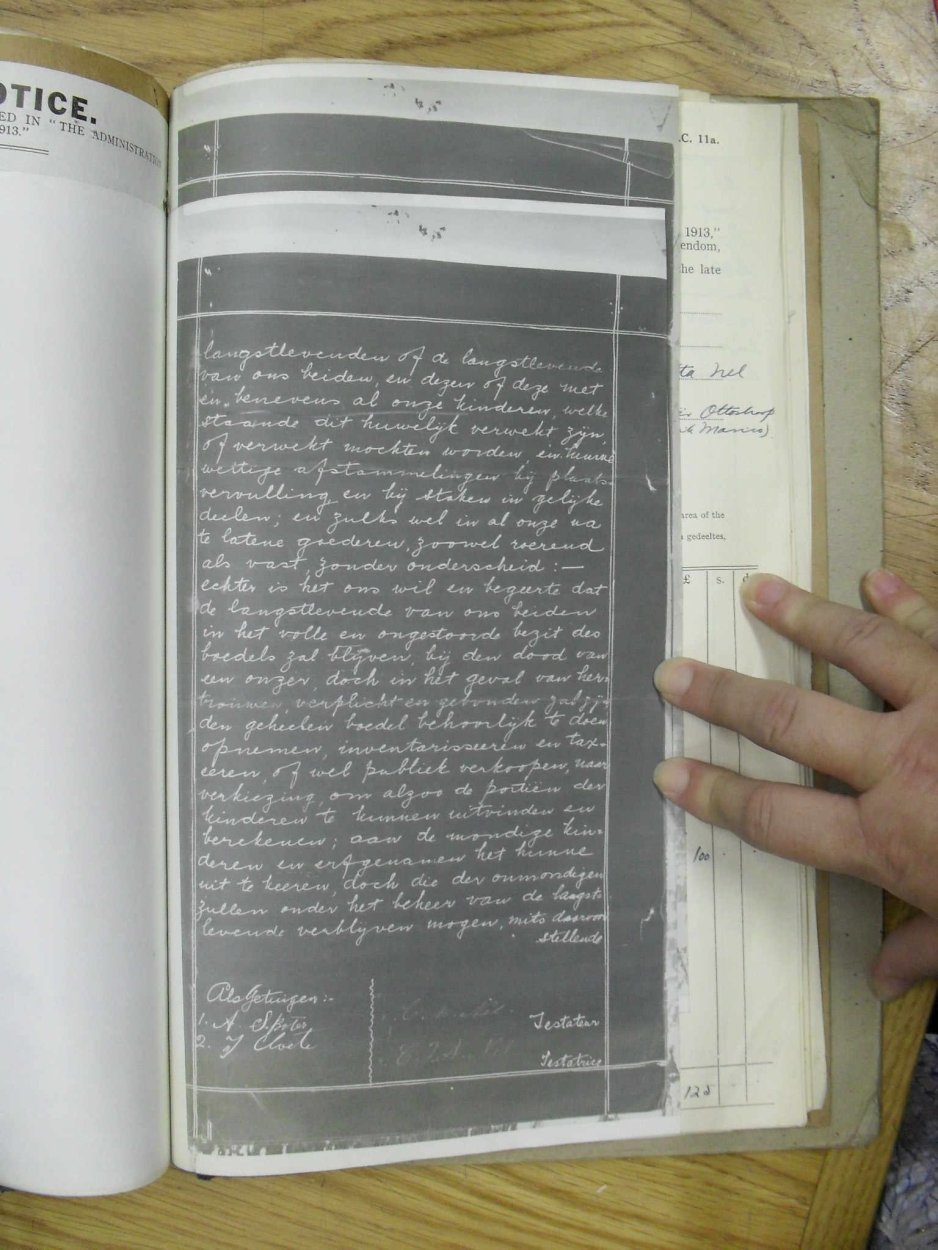 OTICE.
ED IN "THE ADMINISTRATIO
913."
C. 11a.
1913,"
endom,
the late
ta Nel
Ottostroop
area of the
gedeeltes,
£ s. d
100
125
langstlevenden of de langstlevende
van ons beiden, en dezen of deze met
en benevens al onze kinderen, welke
staande dit huwelijk verwekt zijn,
of verwekt mochten worden, en hunne
wettige afstammelingen bij plaats-
vervulling en bij staken in gelijke
deelen; en zulks wel in al onze na
te latene goederen, zoowel roerend
als vast, zonder onderscheid :—
echter is het ons wil en begeerte dat
de langstlevende van ons beiden
in het volle en ongestoorde bezit des
boedels zal blijven, bij den dood van
een onzer, doch in het geval van her-
trouwen, verplicht en gebonden zal zijn
den geheelen boedel behoorlijk te doen
opnemen, inventarisseeren en tax-
eeren, of wel publiek verkoopen, naar
verkiezing, om alzoo de portiën der
kinderen te kunnen uitvinden en
berekenen; aan de mondige kin-
deren en erfgenamen het hunne
uit te keeren, doch die der onmondigen
zullen onder het beheer van de langst-
levende verblyven mogen, mits daarvoor
stellende
Als Getuigen:-
1. A.
2. J Cloete
Testateur
Testatrice